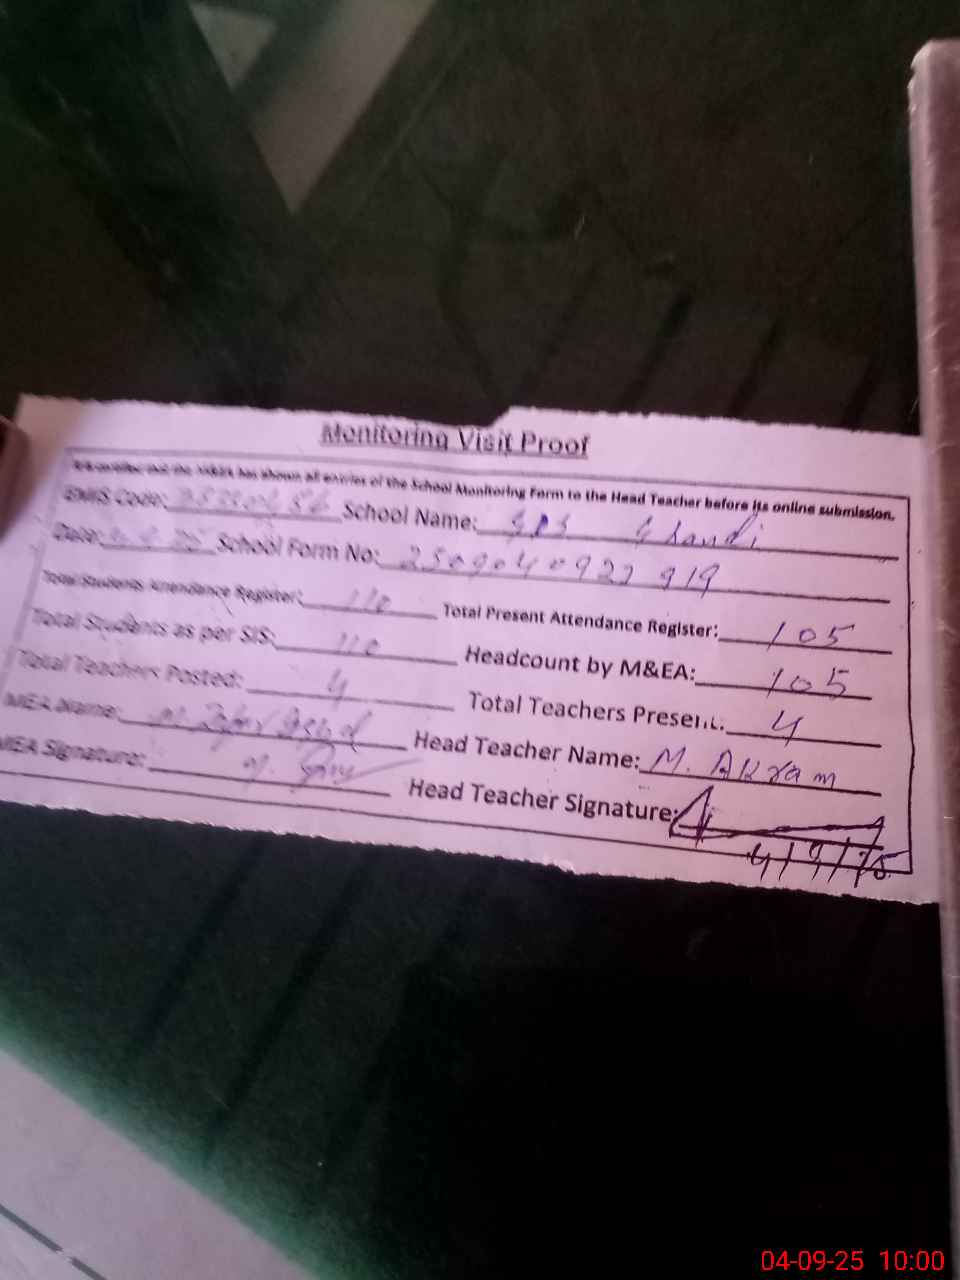 Monitoring Visit Proof
It is certified that the MEA has shown all entries of the School Monitoring Form to the Head Teacher before its online submission.
EMIS Code: School Name: GPS Ghandi
Date: School Form No: 2509040922919
Total Students Attendance Register: 110 Total Present Attendance Register: 105
Total Students as per SIS: 110 Headcount by M&EA: 105
Total Teachers Posted: 4 Total Teachers Present: 4
MEA Name: Head Teacher Name: M. AKram
MEA Signature: Head Teacher Signature:
4/9/25
04-09-25 10:00